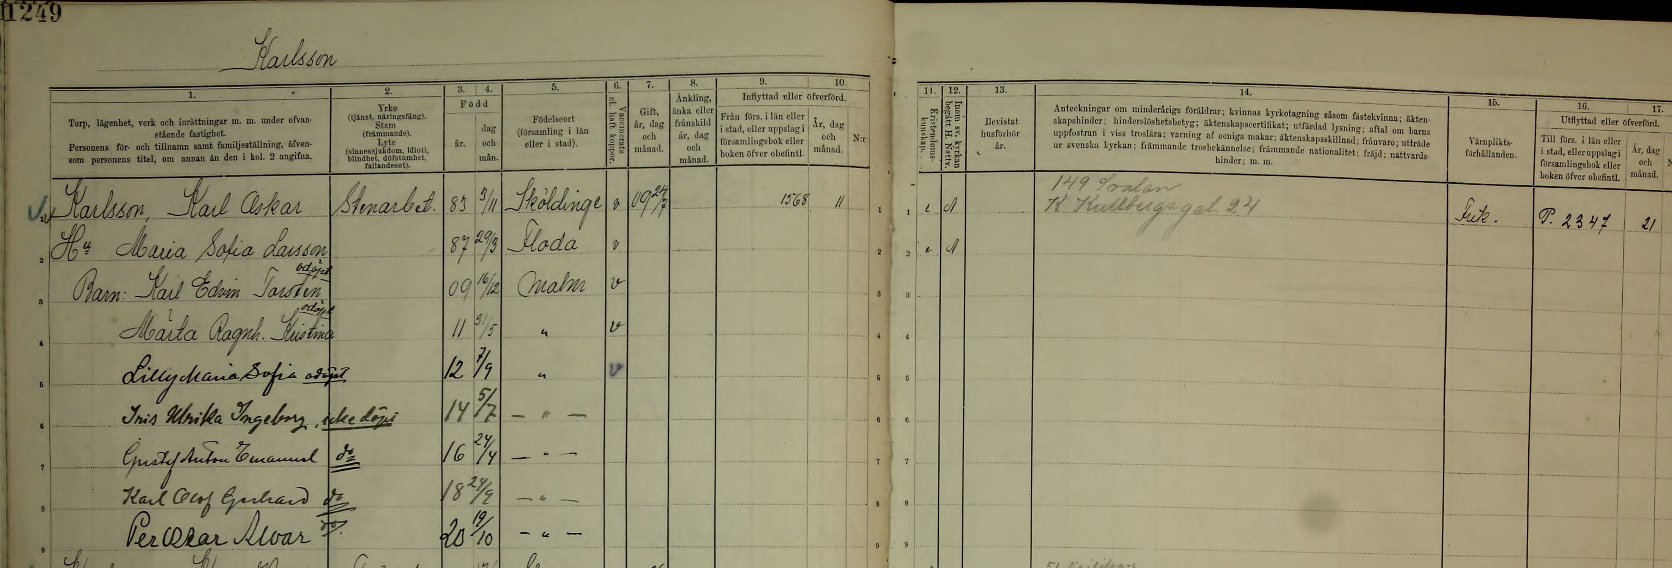 1249
Karlsson
1. 2. 3. 4. 5. 6. 7. 8. 9. 10.
Torp, lägenhet, verk och inrättningar m. m. under ofvan-
stående fastighet.
Personens för- och tillnamn samt familjeställning, äfven-
som personens titel, om annan än den i kol. 2 angifna.
Yrke
(tjänst, näringsfång).
Stam
(främmande).
Lyte
(sinnessjukdom, idioti,
blindhet, döfstumhet,
fallandesot).
Född
år.
dag
och
mån.
Födelseort
(församling i län
eller i stad).
Vaccinerats
el. haft koppor.
Gift,
år, dag
och
månad.
Änkling,
änka eller
frånskild
år, dag
och
månad.
Inflyttad eller öfverförd.
Från förs. i län eller
i stad, eller uppslag i
församlingsbok eller
boken öfver obefintl.
År, dag
och
månad.
N:r
11. 12. 13. 14. 15. 16. 17.
Kristendoms-
kunskap.
Inom sv. kyrkan
begått H. Nattv.
Bevistat
husförhör
år.
Anteckningar om minderårigs föräldrar; kvinnas kyrkotagning såsom fästekvinna; äkten-
skapshinder; hinderslöshetsbetyg; äktenskapscertifikat; utfärdad lysning; aftal om barns
uppfostran i viss troslära; varning af oeniga makar; äktenskapsskillnad; frånvaro; utträde
ur svenska kyrkan; främmande trosbekännelse; främmande nationalitet; fräjd; nattvards-
hinder; m. m.
Värnplikts-
förhållanden.
Utflyttad eller öfverförd.
Till förs. i län eller
i stad, eller uppslag i
församlingsbok eller
boken öfver obefintl.
År, dag
och
månad.
149 Svalan
1 Karlsson, Karl Oskar Stenarbet. 85 3/11 Sköldinge v 09 24/7 1568 11 1 1 N K. Kullbergs gat. 24 Frik. P. 2347 21
2 Hu Maria Sofia Larsson 87 29/3 Floda v 2 2 N
odöpt
3 Barn: Karl Edvin Torsten 09 16/12 Malm v 3 3
odöpt
4 Märta Ragnh. Kristina 11 31/5 " v 4 4
5 Lilly Maria Sofia odöpt 12 7/9 " v 5 5
6 Iris Ulrika Ingeborg, icke döpt 14 5/7 — " — 6 6
7 Gustaf Anton Emanuel do 16 24/4 — " — 7 7
8 Karl Olof Gerhard do 18 24/9 — " — 8 8
9 Per Oskar Alvar do. 20 19/10 — " — 9 9